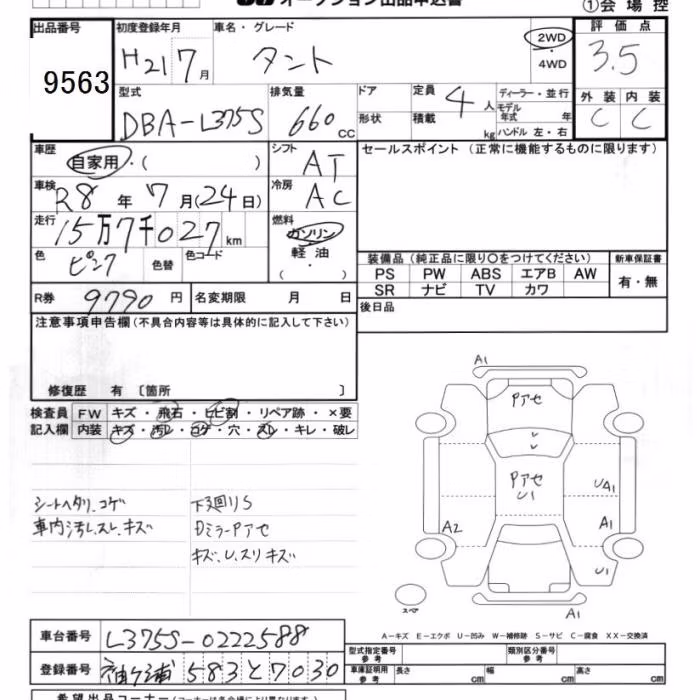 オークション出品申込書
①会場控
出品番号 初度登録年月 車名・グレード 2WD 評価点
9563 H21 7月 タント ・ 3.5
4WD
型式 排気量 ドア 定員 4人 ディーラー・並行 外装 内装
DBA-L375S 660cc 形状 積載 kg モデル年式 年 C C
ハンドル 左・右
車歴 シフト セールスポイント (正常に機能するものに限ります)
自家用・( ) AT
車検 冷房
R8年7月(24日) AC
走行 燃料
15万7千027km ガソリン
色 ピンク 色替 色コード 軽油 装備品(純正品に限り○をつけてください) 新車保証書
・( ) PS PW ABS エアB AW 有・無
R券 9790円 名変期限 月 日 SR ナビ TV カワ
注意事項申告欄(不具合内容等は具体的に記入して下さい) 後日品
修復歴 有 〔箇所 〕
検査員 FW キズ・飛石・ヒビ割・リペア跡・×要
記入欄 内装 キズ・汚レ・コゲ・穴・スレ・キレ・破レ
A1
Pアセ
Pアセ
U1
UA1
A2
A1
U1
スペア
A1
シートヘタリ、コゲ 下廻りS
車内汚レ、スレ、キズ Dミラー Pアセ
キズ、U、スリキズ
A―キズ E―エクボ U―凹み W―補修跡 S―サビ C―腐食 XX―交換済
車台番号 L375S-0222588
型式指定番号 参考 類別区分番号 参考
登録番号 袖ヶ浦 583と7030
車庫証明用 参考 長さ cm 幅 cm 高さ cm
希望出品コーナー(コーナーは各会場により異なります)